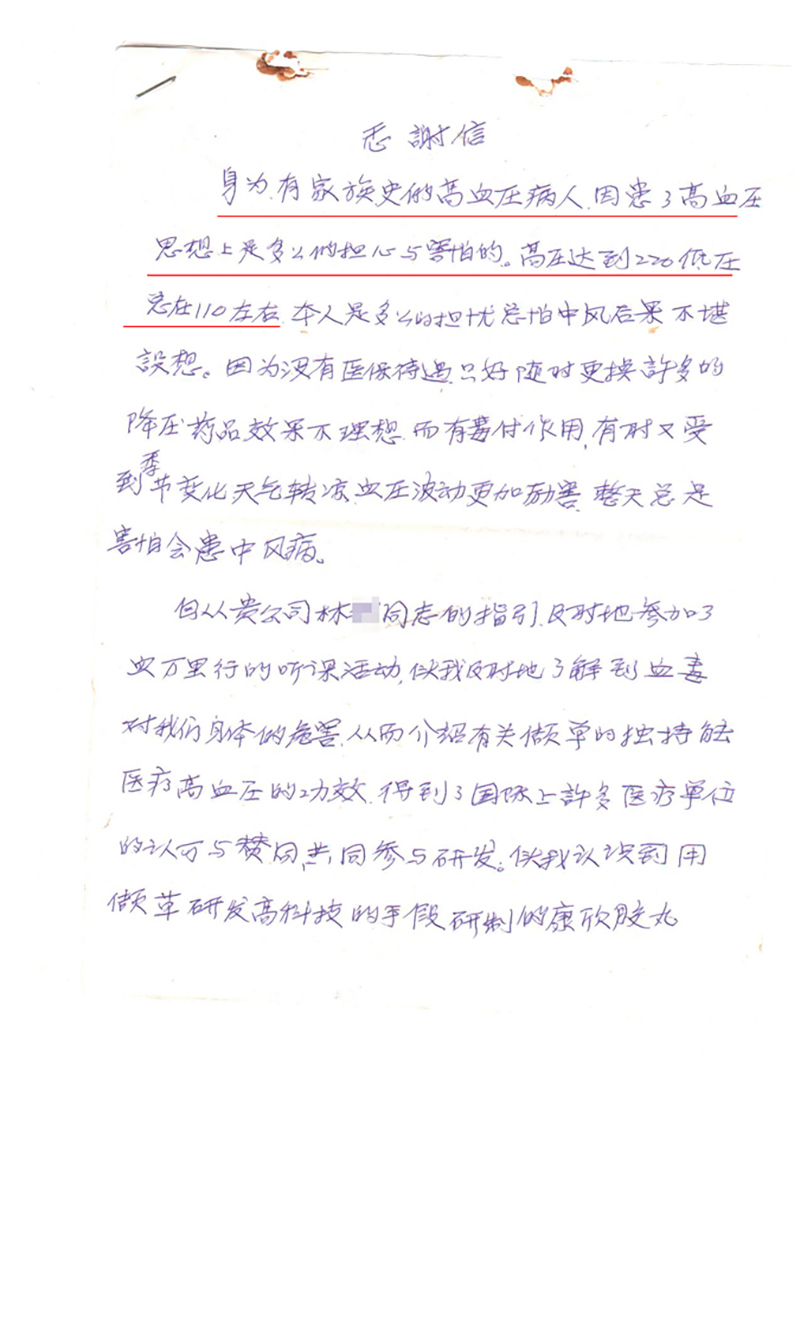 感謝信
身为有家族史的高血压病人.因患了高血压
思想上是多么的担心与害怕的。高压达到220低压
总在110左右.本人是多么的担忧总怕中风后果不堪
設想。因为没有医保待遇只好随时更换許多的
降压药品效果不理想.而有毒付作用,有时又受
到季节变化天气转凉.血压波动更加励害.整天总是
害怕会患中风病。
自从贵公司林 同志的指引.及时地参加了
血万里行的听课活动,使我及时地了解到血毒
对我们身体的危害.从而介绍有关 草的独特能
医疗高血压的功效.得到了国际上許多医疗单位
的认可与赞同,共同参与研发。使我认识到用
草研发高科技的手段研制的康欣胶丸